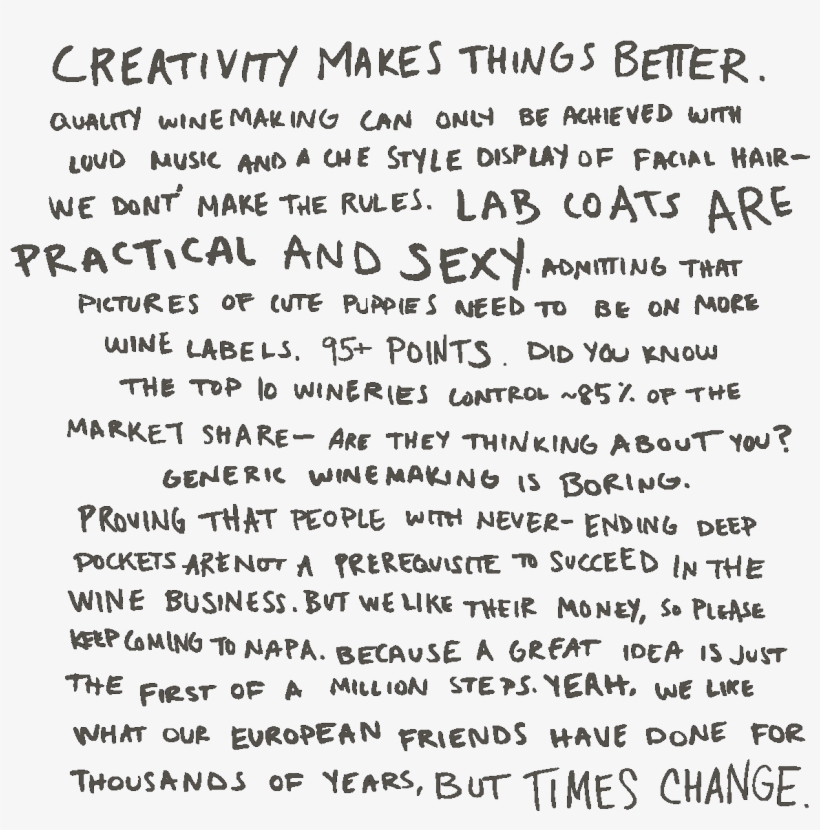 CREATIVITY MAKES THINGS BETTER.
QUALITY WINEMAKING CAN ONLY BE ACHIEVED WITH
LOUD MUSIC AND A CHE STYLE DISPLAY OF FACIAL HAIR—
WE DONT' MAKE THE RULES. LAB COATS ARE
PRACTICAL AND SEXY. ADMITTING THAT
PICTURES OF CUTE PUPPIES NEED TO BE ON MORE
WINE LABELS. 95+ POINTS. DID YOU KNOW
THE TOP 10 WINERIES CONTROL ~85% OF THE
MARKET SHARE— ARE THEY THINKING ABOUT YOU?
GENERIC WINEMAKING IS BORING.
PROVING THAT PEOPLE WITH NEVER-ENDING DEEP
POCKETS ARE NOT A PREREQUISITE TO SUCCEED IN THE
WINE BUSINESS. BUT WE LIKE THEIR MONEY, SO PLEASE
KEEP COMING TO NAPA. BECAUSE A GREAT IDEA IS JUST
THE FIRST OF A MILLION STEPS. YEAH, WE LIKE
WHAT OUR EUROPEAN FRIENDS HAVE DONE FOR
THOUSANDS OF YEARS, BUT TIMES CHANGE.